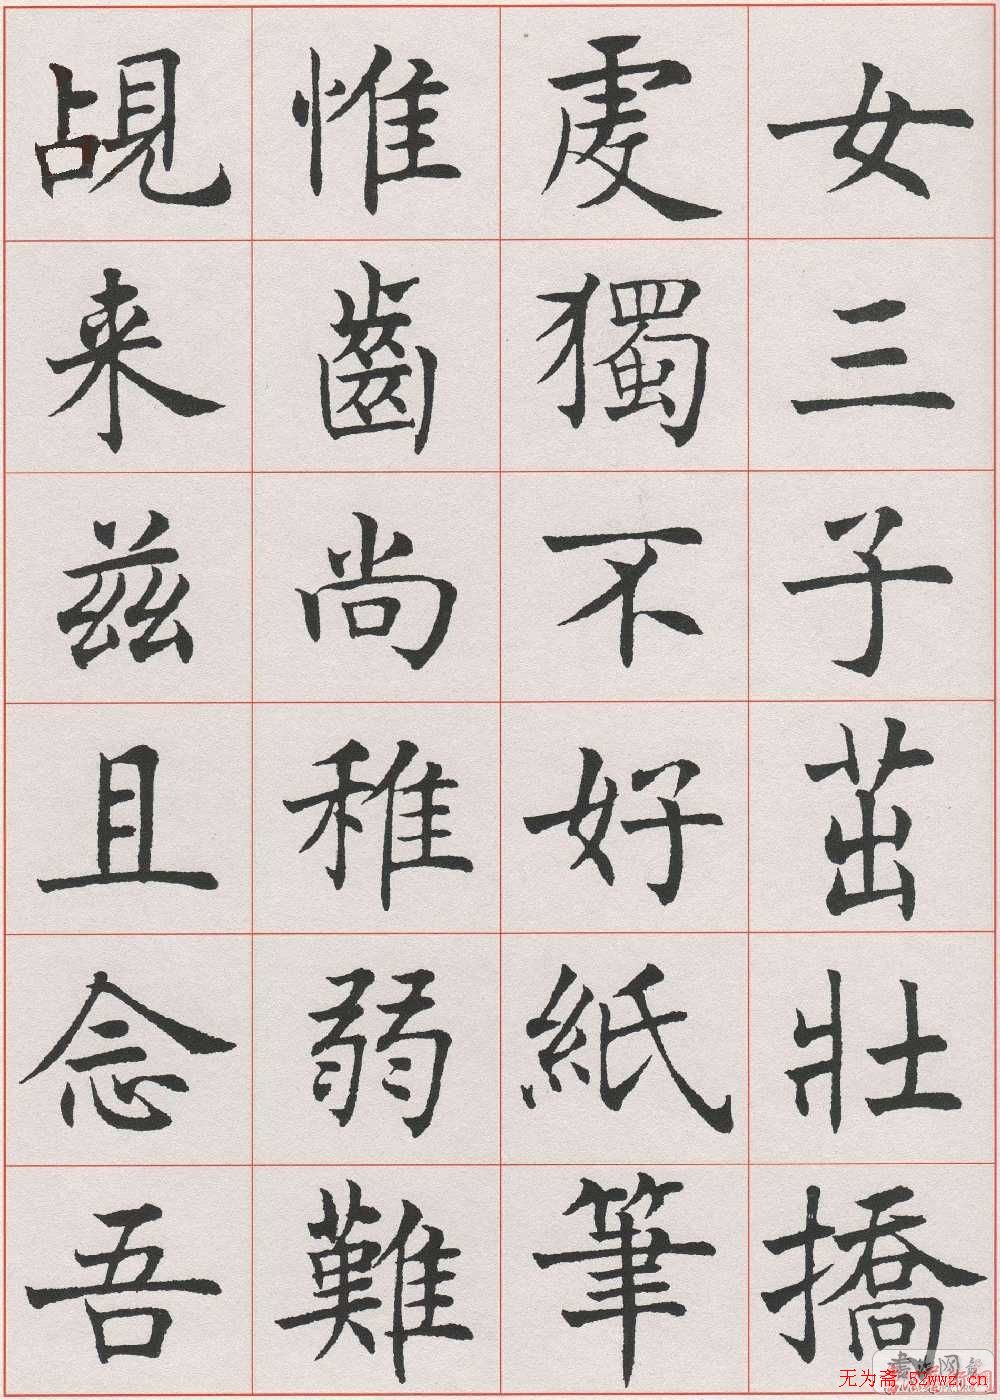 女三子茁壯撟
處獨不好紙筆
惟齒尚稚弱難
覘来兹且念吾
无为斋 52wwz.cn